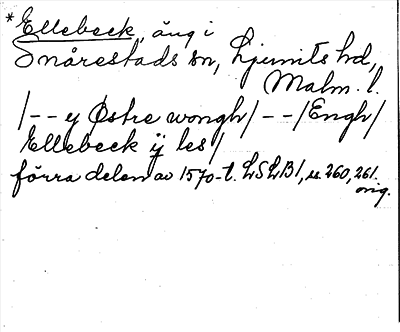 *Ellebeck, äng i
Snårestads sn, Ljunits hd,
Malm. l.
/-- y Østre wongh/ --/Engh/
Ellebeck ÿ les/
förra delen av 1570-t. LSLB1, s. 260, 261.
orig.